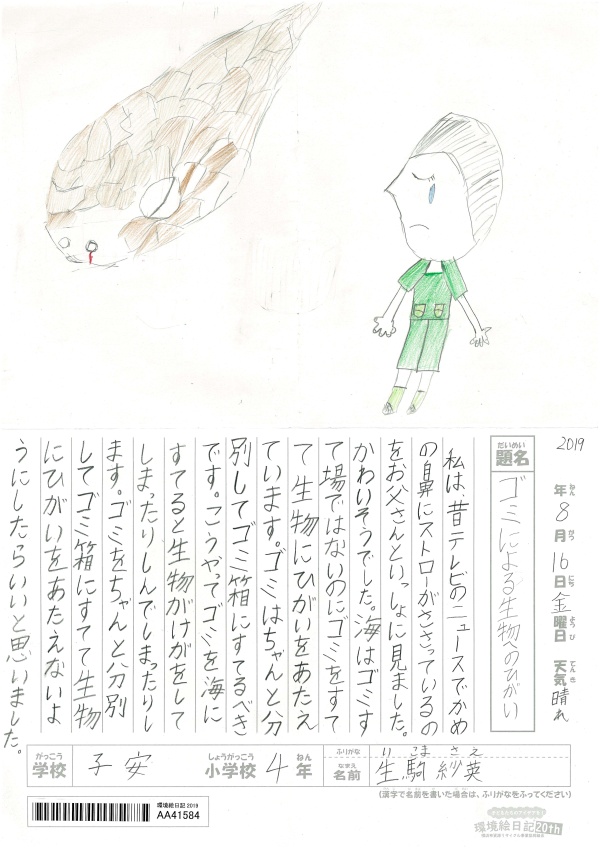 2019年8月16日金曜日 天気晴れ
ねん がつ にち ようび てんき
だいめい
題名
ゴミによる生物へのひがい
私は、昔テレビのニュースでかめ
の鼻にストローがささっているの
をお父さんといっしょに見ました。
かわいそうでした。海はゴミす
て場ではないのにゴミをすて
て生物にひがいをあたえ
ています。ゴミはちゃんと分
別してゴミ箱にすてるべき
です。こうやってゴミを海に
すてると生物がけがをして
しまったりしんでしまったりし
ます。ゴミをちゃんと分別
してゴミ箱にすてて生物
にひがいをあたえないよ
うにしたらいいと思いました。
がっこう しょうがっこう ねん ふりがな いこま さえ
学校 子安 小学校 4年 なまえ 名前 生駒 紗英
(漢字で名前を書いた場合は、ふりがなをふってください)
環境絵日記 2019
AA41584
環境絵日記 20th